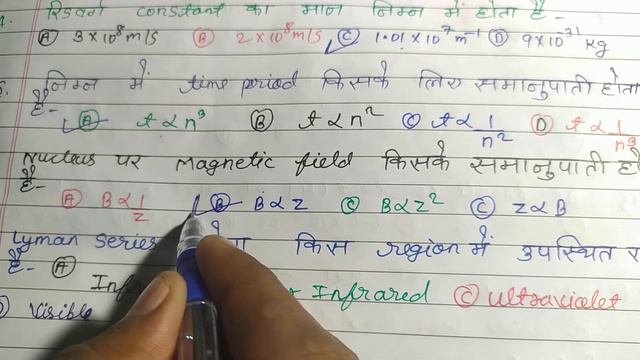 रिडबर्ग constant का मान निम्न में होता है -
Ⓐ 3×10⁸ m/s Ⓑ 2×10⁸ m/s Ⓒ 1.01×10⁷ m⁻¹ Ⓓ 9×10⁻³¹ kg
निम्न में time period किसके लिए समानुपाती होता
है -
Ⓐ t ∝ n³ Ⓑ t ∝ n² Ⓒ t ∝ 1/n² Ⓓ t ∝ 1/n³
Nucleus पर Magnetic field किसके समानुपाती हो
है -
Ⓐ B ∝ 1/Z Ⓑ B ∝ Z Ⓒ B ∝ Z² Ⓒ Z ∝ B
Lyman Series किस region में उपस्थित र
है - Ⓐ
Infrared Ⓒ Ultraviolet
Visible